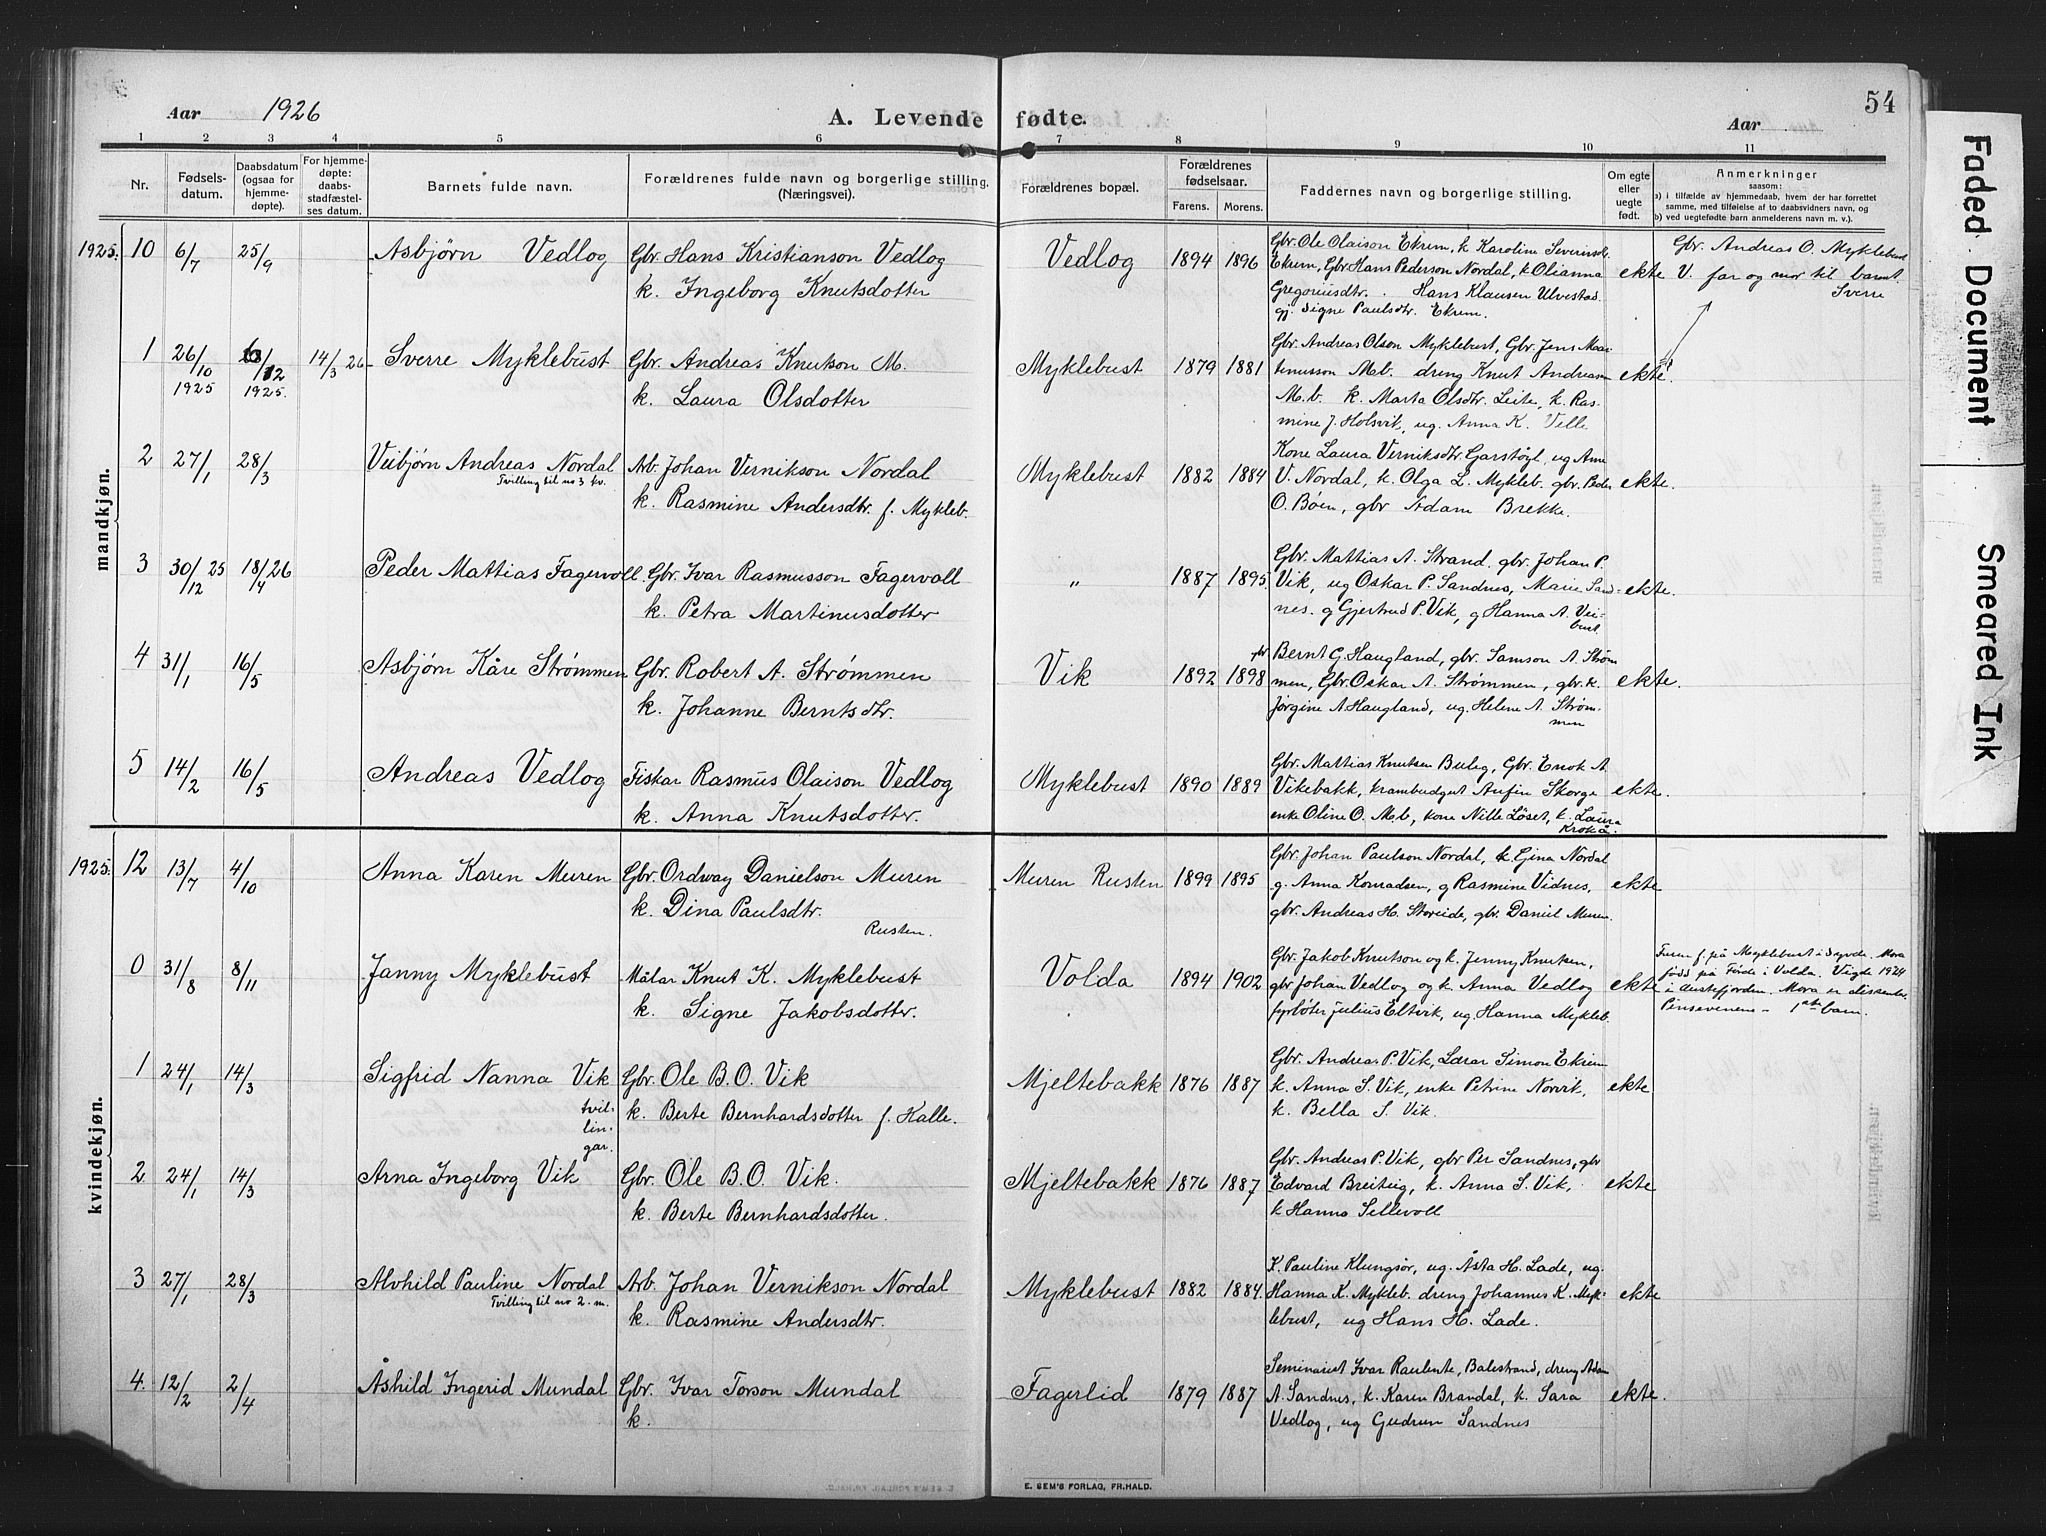 Aar 1926
A. Levende fødte.
Aar
54
1 2 3 4 5 6 7 8 9 10 11
Nr.
Fødsels-
datum.
Daabsdatum
(ogsaa for
hjemme-
døpte).
For hjemme-
døpte:
daabs-
stadfæstel-
ses datum.
Barnets fulde navn.
Forældrenes fulde navn og borgerlige stilling.
(Næringsvei).
Forældrenes bopæl.
Forældrenes
fødselsaar.
Farens. Morens.
Faddernes navn og borgerlige stilling.
Om egte
eller
uegte
født.
Anmerkninger
saasom:
a) i tilfælde av hjemmedaab, hvem der har forrettet
samme, med tilføielse af to daabsvidners navn, og
b) ved uegtefødte barn anmelderens navn m. v.).
mandkjøn.
1925. 10 6/7 25/9 Asbjørn Vedlog
Gbr. Hans Kristianson Vedlog
k. Ingeborg Knutsdotter
Vedlog 1894 1896
Gbr. Ole Olaison Ekrem, k Karoline Severinsdtr.
Ekrem, Gbr Hans Pederson Nordal, k Olianna
Gregoriusdtr. Hans Klausen Ulvestad
gj. Signe Paulsdtr. Ekrem.
ekte
Gbr. Andreas O. Myklebust
V. far og mor til barnet
Sverre
1 26/10 1925 /12 1925. 14/3 26 Sverre Myklebust
Gbr. Andreas Knutson M.
k. Laura Olsdotter
Myklebust 1879 1881
Gbr. Andreas Olson Myklebust, Gbr. Jens Mar-
tinusson M.b. dreng Knut Andreasn
M.b. k. Marta Olsdtr. Leite, k. Ras-
mine J. Holsvik, ug. Anna K. Velle
ekte.
2 27/1 28/3 Veibjørn Andreas Nordal
Tvilling til no 3 kv.
Arb. Johan Vernikson Nordal
k. Rasmine Andersdtr. f. Mykleb.
Myklebust 1882 1884
Kone Laura Verniksdtr. Garshøyl, ug Anne
V. Nordal, k. Olga L. Mykleb. gbr. Peder
O. Bøen, gbr Adam Brekke.
ekte.
3 30/12 25 18/4 26 Peder Mattias Fagervoll.
Gbr. Ivar Rasmusson Fagervoll
k. Petra Martinusdotter
" 1887 1895.
Gbr. Mattias A. Strand. gbr. Johan P.
Vik, ug Oskar P. Sandnes, Marie Sand-
nes. g Gjertrud P. Vik, g Hanna A. Vei-
bust.
ekte.
4 31/1 16/5 Asbjørn Kåre Strømmen
Gbr. Robert A. Strømmen
k. Johanne Berntsdtr.
Vik 1892 1898
gbr Bernt G. Haugland, gbr. Samson A. Strøm
men, Gbr. Oskar A. Strømmen, gbr. k.
Jørgine A Haugland, ug. Helene A. Strøm-
men
ekte.
5 14/2 16/5 Andreas Vedlog
Fiskar Rasmus Olaison Vedlog
k. Anna Knutsdotter.
Myklebust 1890 1889
Gbr. Mattias Knutsen Buleg, Gbr. Enok A.
Vikebakk, krambudgut Anfin Skorge
enke Oline O. M.b, kone Nille Løset, k. Laura
Krokå.
ekte.
kvindekjøn.
1925. 12 13/7 4/10 Anna Karen Muren
Gbr. Ordway Danielson Muren
k. Dina Paulsdtr.
Rusten.
Muren Rusten 1899 1895
Gbr. Johan Paulson Nordal, k. Gina Nordal
g. Anna Konradsen, g Rasmine Vidnes,
gbr. Andreas H. Storeide, gbr. Daniel Muren.
ekte
0 31/8 8/11 Janny Myklebust
Målar Knut K. Myklebust
k. Signe Jakobsdotter.
Volda 1894 1902
Gbr. Jakob Knutson og k. Jenny Knutsen,
gbr Johan Vedlog og k. Anna Vedlog
fyrbøter Julius Eltvik, ug. Hanna Mykleb.
ekte
Faren f. på Myklebust i Syvde. Mora
født på Førde i Volda. Vigde 1924
i Austefjorden. Mora er dissenter.
Pinsevenene - 1ste barn.
1 24/1 14/3 Sigfrid Nanna Vik
tvil-
lin-
gar.
Gbr. Ole B.O. Vik
k. Berte Bernhardsdotter f. Halle.
Mjeltebakk 1876 1887
Gbr. Andreas P. Vik, Lærar Simon Ekrem
k. Anna S. Vik, enke Petrine Norvik,
k. Bella S. Vik.
ekte
2 24/1 14/3 Arna Ingeborg Vik
Gbr. Ole B.O. Vik.
k. Berte Bernhardsdotter.
Mjeltebakk 1876 1887
Gbr. Andreas P. Vik, gbr Per Sandnes, gbr
Edvard Breiteig, k. Anna S. Vik,
k Hanna Sellevoll
ekte
3 27/1 28/3 Alvhild Pauline Nordal
Tvilling til no 2. m.
Arb. Johan Vernikson Nordal
k. Rasmine Andersdtr.
Myklebust 1882 1884.
K. Pauline Klungsør, ug. Åsta H. Lade, ug.
Hanna K. Mykleb. dreng Johannes K. Myk-
lebust, ug Hans H. Lade.
ekte
4. 12/2 2/4 Åshild Ingerid Mundal
Gbr. Ivar Torson Mundal
k.
Fagerlid 1879 1887
Seminarist Ivar Raulente, Balestrand, dreng Adam
A. Sandnes, k. Karen Brandal, k. Sara
Vedlog, ug Gudrun Sandnes
ekte.
E. SEM'S FORLAG, FR.HALD.
Faded Document
Smeared Ink